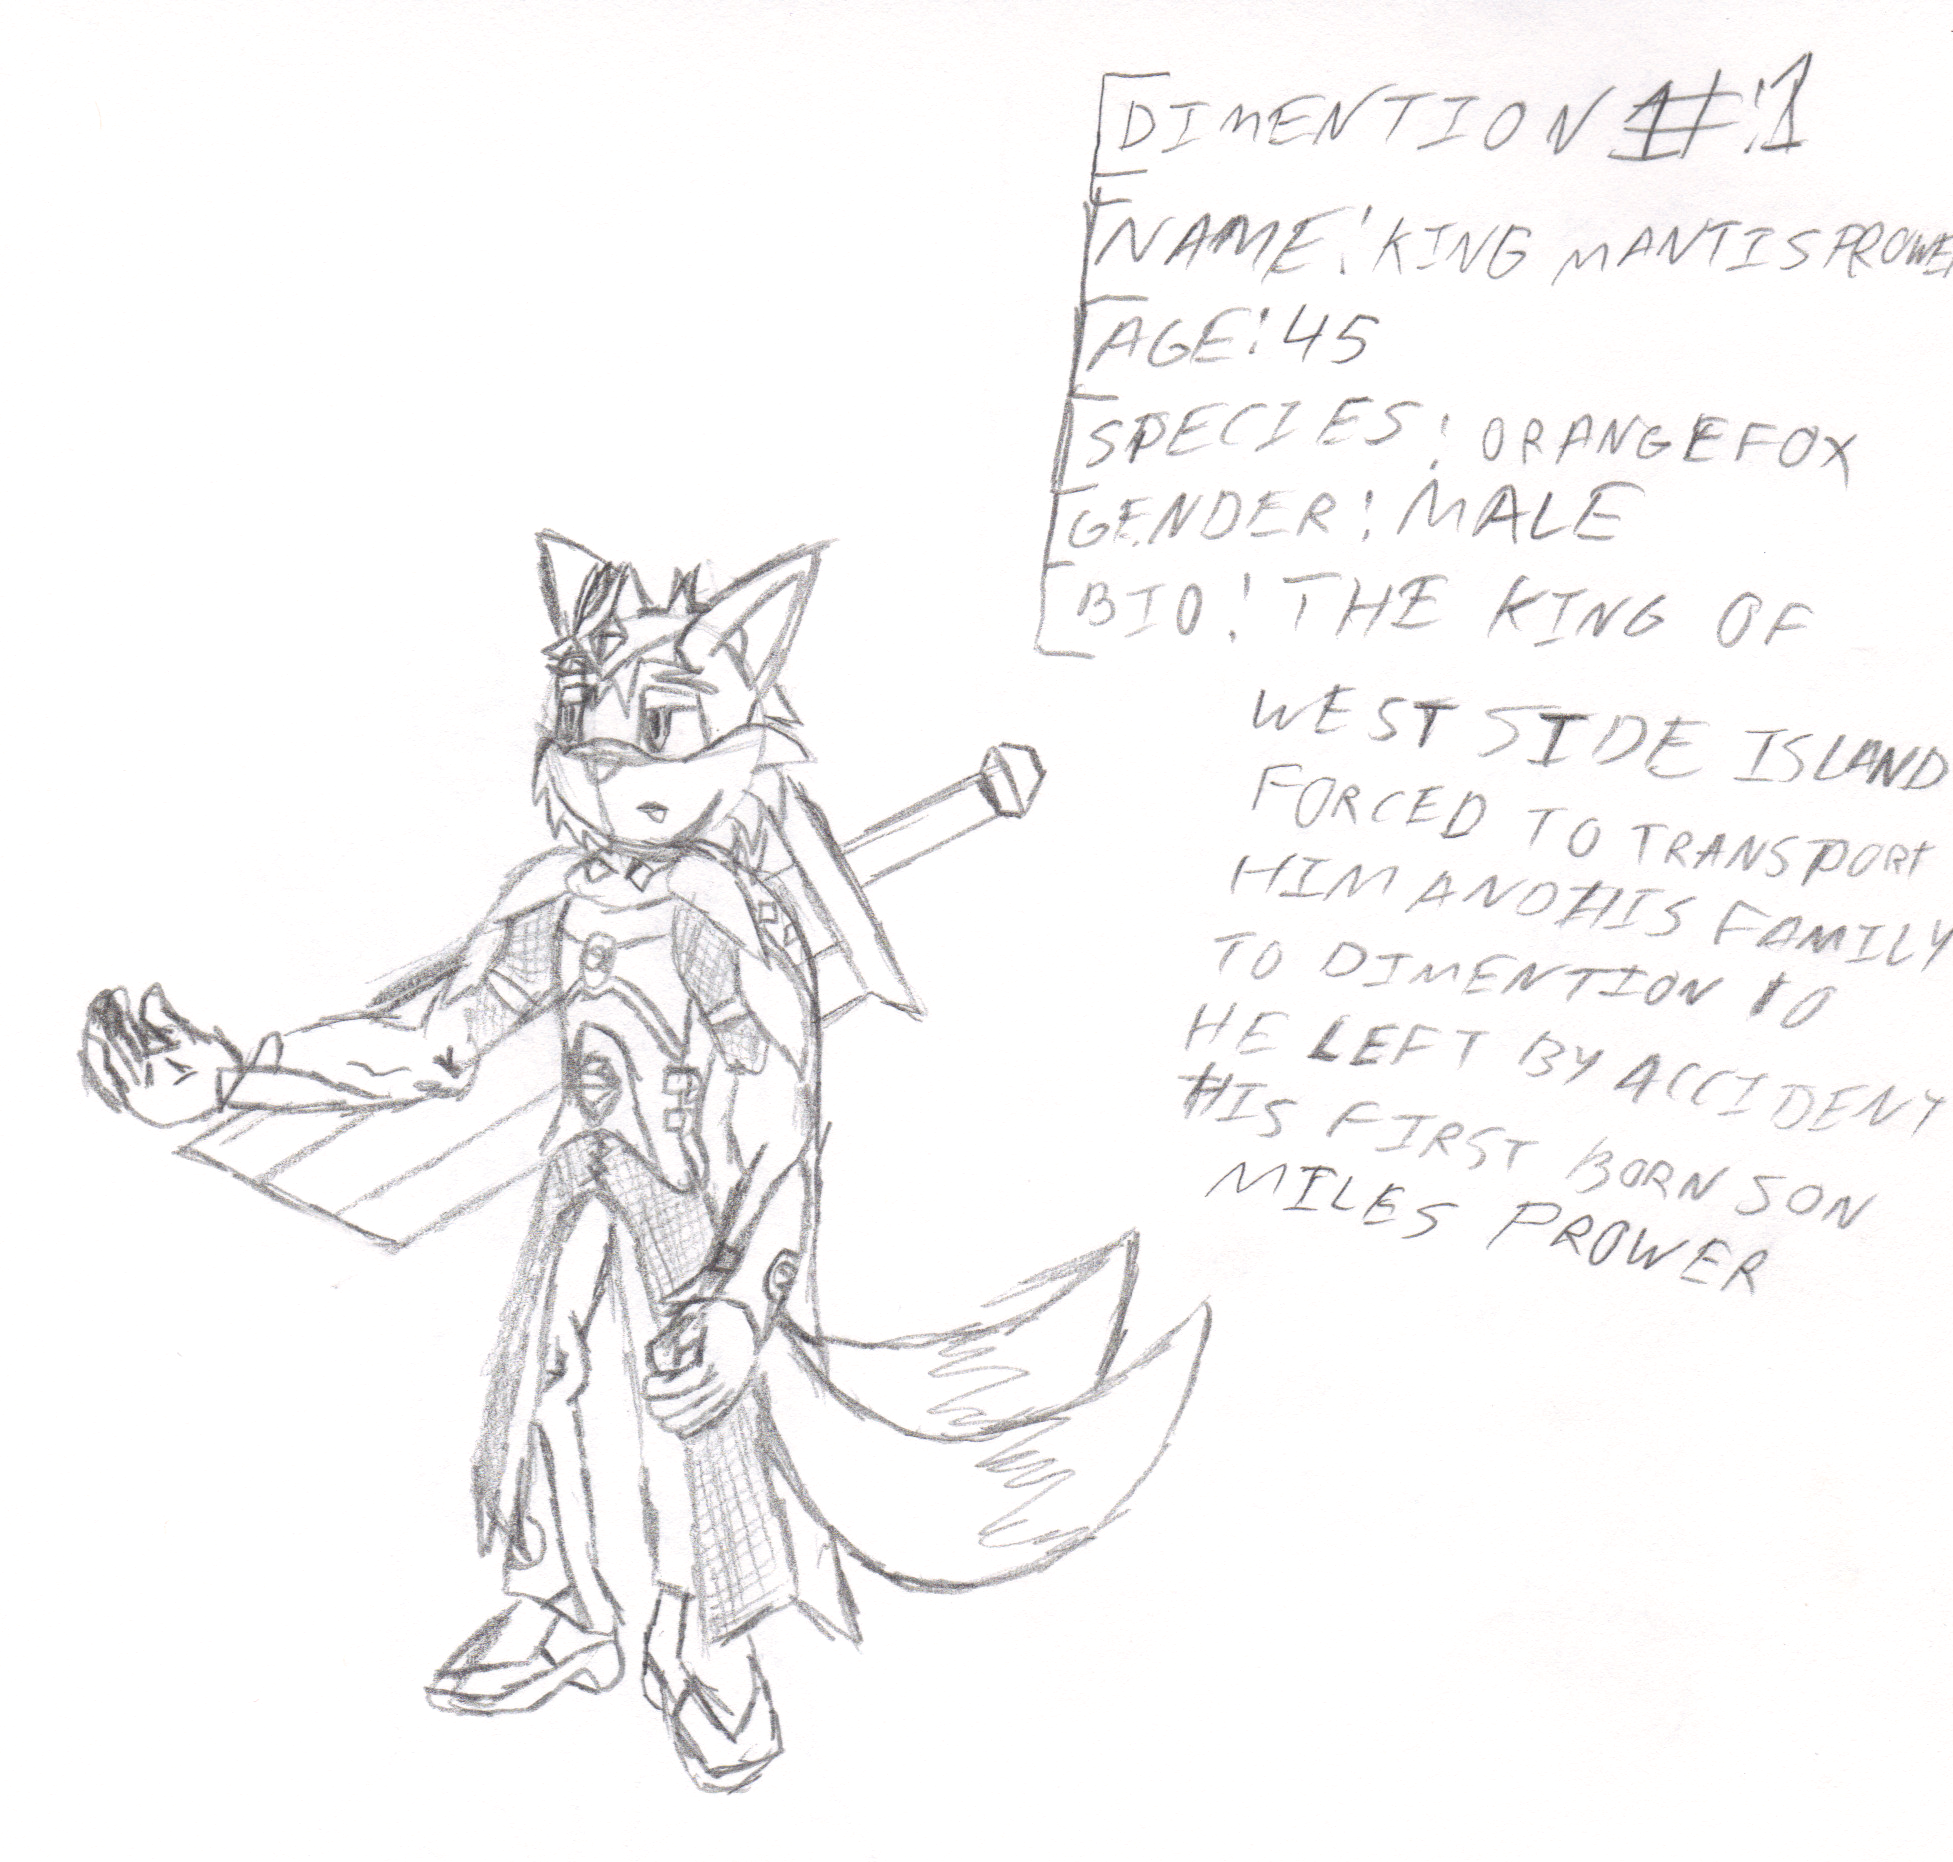 DIMENTION #:1
NAME: KING MANTIS PROWER
AGE: 45
SPECIES: ORANGE FOX
GENDER: MALE
BIO: THE KING OF
WEST SIDE ISLAND
FORCED TO TRANSPORT
HIM AND HIS FAMILY
TO DIMENTION 10
HE LEFT BY ACCIDENY
HIS FIRST BORN SON
MILES PROWER